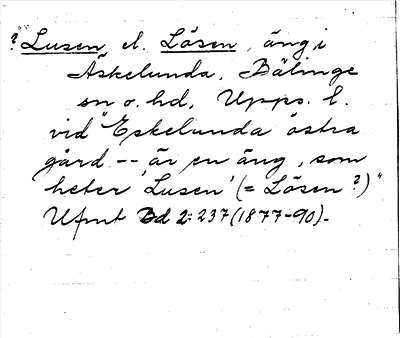 ?"Lusen el. Lösen, äng i
Äskelunda, Bälinge
sn o. hd, Upps. l.
vid "Eskelunda östra
gård -- är en äng, som
heter 'Lusen' (= Lösen?)"
Ufmt Bd 2: 237 (1877-90).